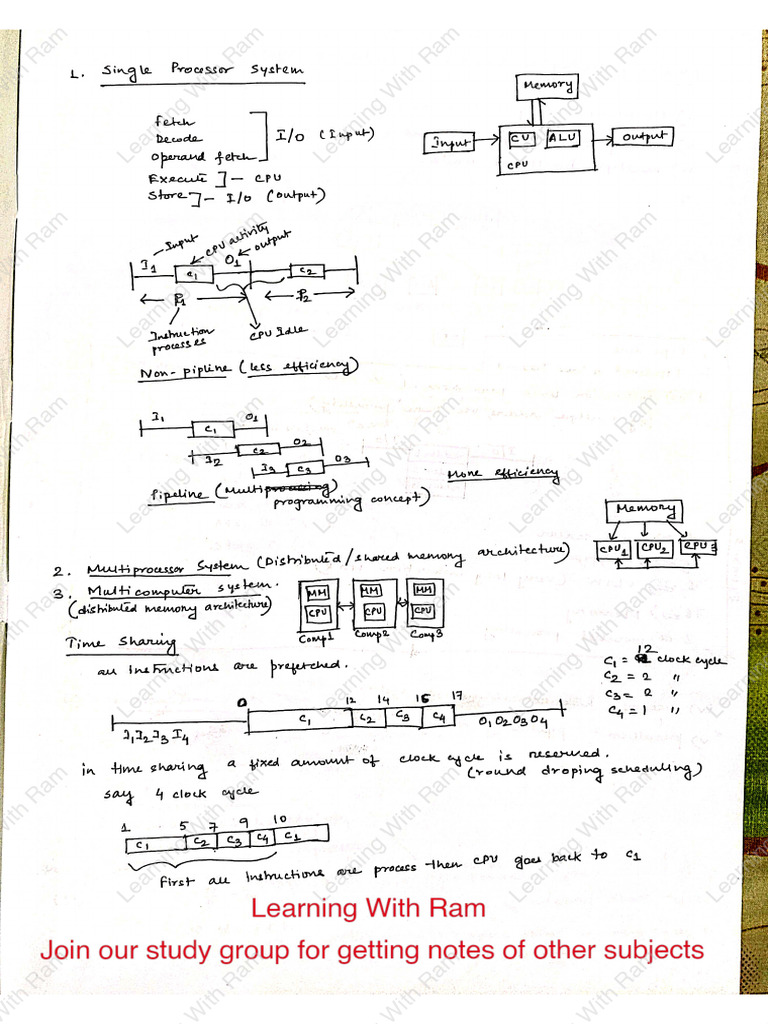 1. Single Processor System
Memory
fetch
Decode
Operand fetch
I/O (Input)
Execute ] — CPU
Store ] — I/O (Output)
Input
CU
ALU
CPU
Output
Input
CPU activity
output
I1
C1
O1
C2
P1
P2
Instruction
processes
CPU Idle
Non-pipline (less efficiency)
I1
C1
O1
I2
C2
O2
I3
C3
O3
More efficiency
Pipeline (Multiprocessing
programming concept)
Memory
CPU1
CPU2
CPU3
2. Multiprocessor System (Distributed/shared memory architecture)
3. Multicomputer system.
(distributed memory architecture)
MM
CPU
Comp1
MM
CPU
Comp2
MM
CPU
Comp3
Time Sharing
all Instructions are prefetched.
C1 = 12 clock cycle
C2 = 2 "
C3 = 2 "
C4 = 1 "
0 12 14 16 17
I1I2I3 I4
C1 C2 C3 C4
O1O2O3O4
in time sharing a fixed amount of clock cycle is reserved.
(round droping scheduling)
say 4 clock cycle
1 5 7 9 10
C1 C2 C3 C4 C1
First all instructions are process then CPU goes back to C1
Learning With Ram
Join our study group for getting notes of other subjects